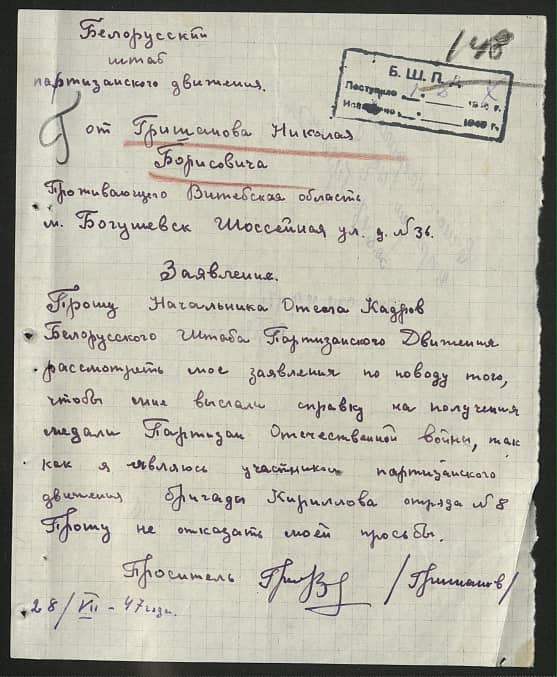 Белорусский
штаб
партизанского движения.
148
Б. Ш. П. Д.
Поступило
194 г.
1940 г.
от Гришанова Николая
Борисовича
Проживающего Витебская область
м. Богушевск Шоссейная ул. д. N 36.
Заявление.
Прошу Начальника Отдела Кадров
Белорусского Штаба Партизанского Движения
рассмотреть мое заявления по поводу того,
чтобы мне выслали справку на получения
медали Партизан Отечественной войны, так
как я являюсь участником партизанского
движения бригады Кириллова отряда N 8
Прошу не отказать моей просьбы.
Проситель /Гришанов/
28/VII - 47 года.